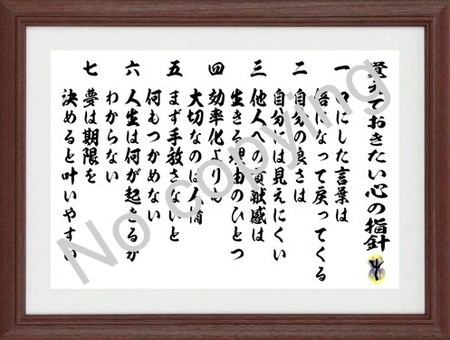 覚えておきたい心の指針
一 口にした言葉は
倍になって戻ってくる
二 自分の良さは
自分には見えにくい
三 他人への貢献感は
生きる理由のひとつ
四 効率化よりも
大切なのは人情
五 まず手放さないと
何もつかめない
六 人生は何が起こるか
わからない
七 夢は期限を
決めると叶いやすい
No copying